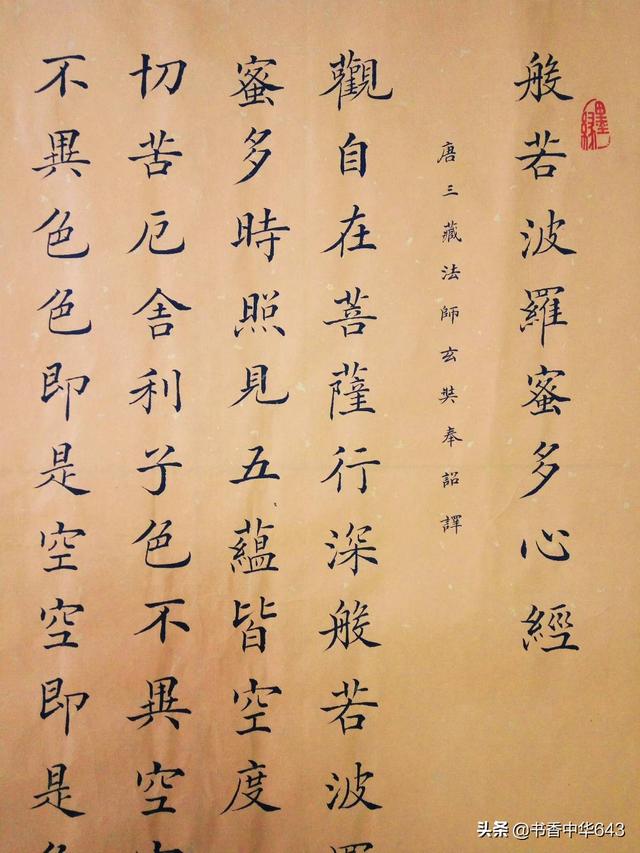 般若波羅蜜多心經
唐三藏法師玄奘奉詔譯
觀自在菩薩行深般若波羅
蜜多時照見五蘊皆空度
切苦厄舍利子色不異空
不異色色即是空空即是色
头条 @书香中华643